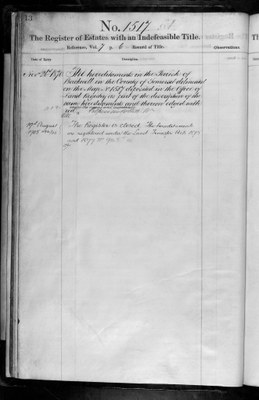 13
No. 1517
The Register of Estates with an Indefeasible Title.
Reference, Vol. 7 Record of Title.
Observations.
Date of Entry
Description
Nov 26th 1870 The hereditaments in the Parish of
in the County of Somerset delineated
on the Map No 1517 deposited in the Office of
Land Registry as part of the description of the
same hereditaments and thereon edged with
1903 The Register is closed. The hereditaments
are registered under the Land Transfer Acts 1875
and 1897